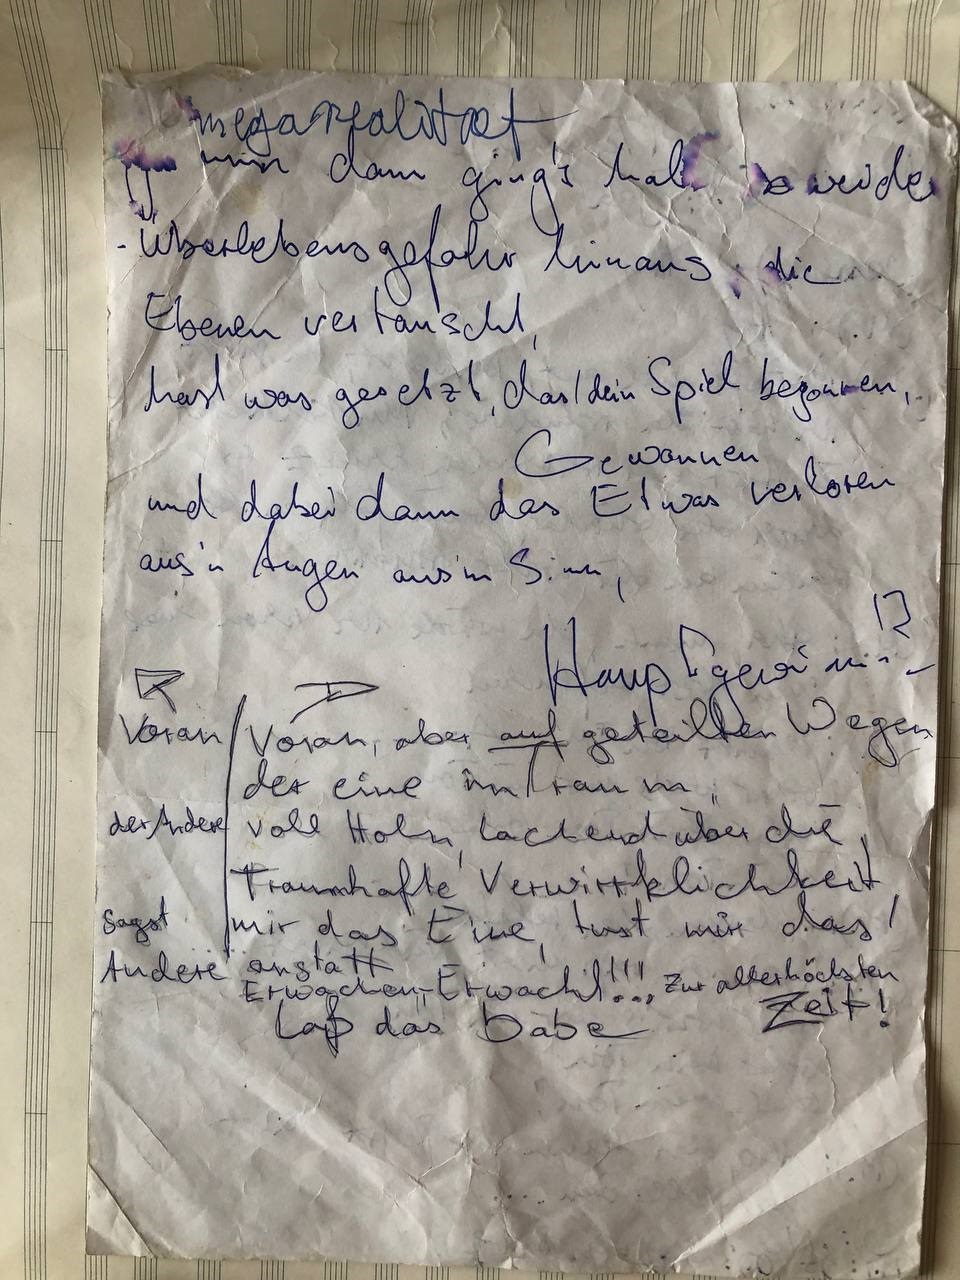 megarealitaet
dann ging's
Überlebensgefahr hinaus, die
Ebenen vertauscht,
hast was gesetzt, das/dein Spiel begonnen,
Gewonnen
und dabei dann das Etwas verloren
aus'n Augen aus'm Sinn,
Hauptgewinn!?
Voran / Voran, aber auf geteilten Wegen
der eine im Traum,
der Andere voll Hohn, lachend über die
Traumhafte Verwirrklichkeit
Sagst mir das Eine, tust mir das /
Andere anstatt
Erwachen, Erwacht!!!, zur allerhöchsten
Zeit!
Laß das Babe